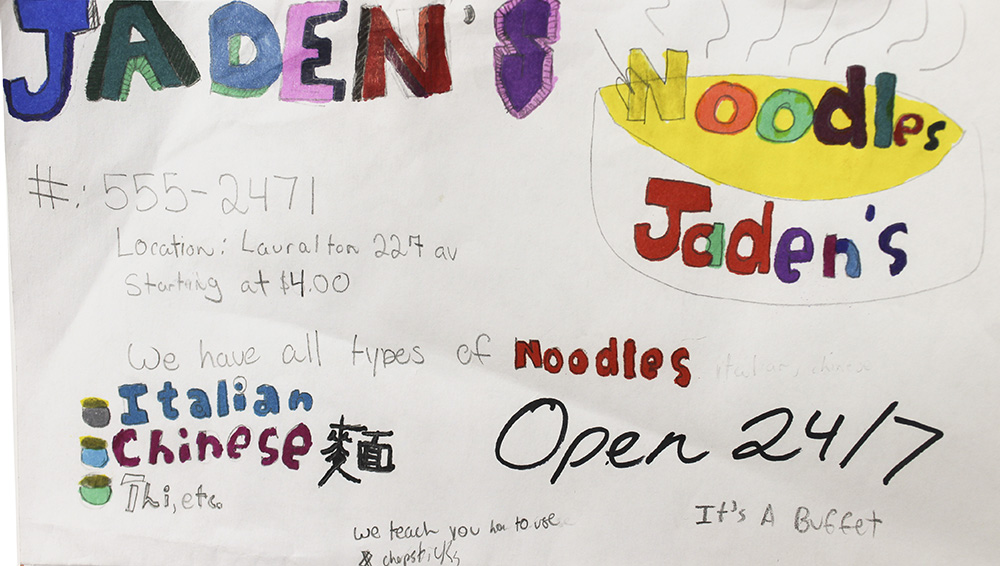 JADEN'S
Noodles
Jaden's
#: 555-2471
Location: Lauralton 227 av
Starting at $4.00
We have all types of Noodles Italian, chinese
Italian
Chinese 麵
Thi, etc.
Open 24/7
It's A Buffet
we teach you how to use
chopsticks